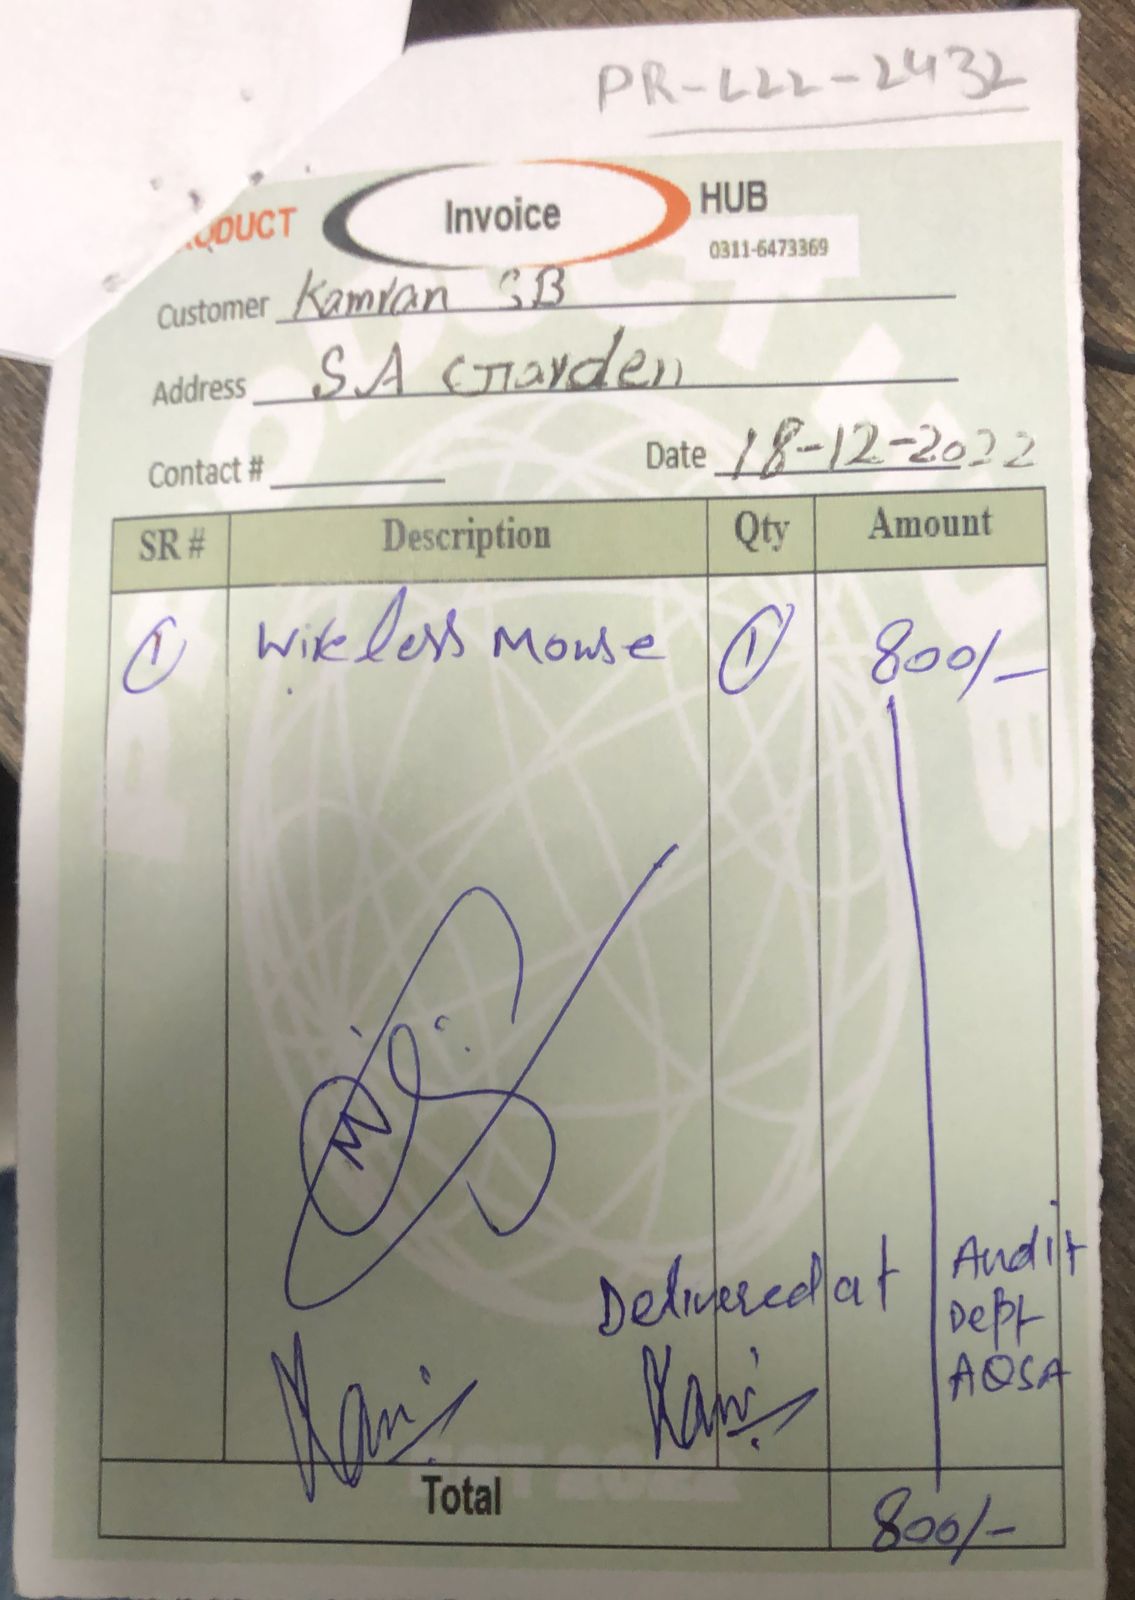 PR-L22-2432
PRODUCT Invoice HUB
0311-6473369
Customer Kamran SB
Address SA Garden
Contact #
Date 18-12-2022
SR # Description Qty Amount
1 Wireless Mouse 1 800/-
Delivered at
Audit
Dept
AQSA
Total 800/-